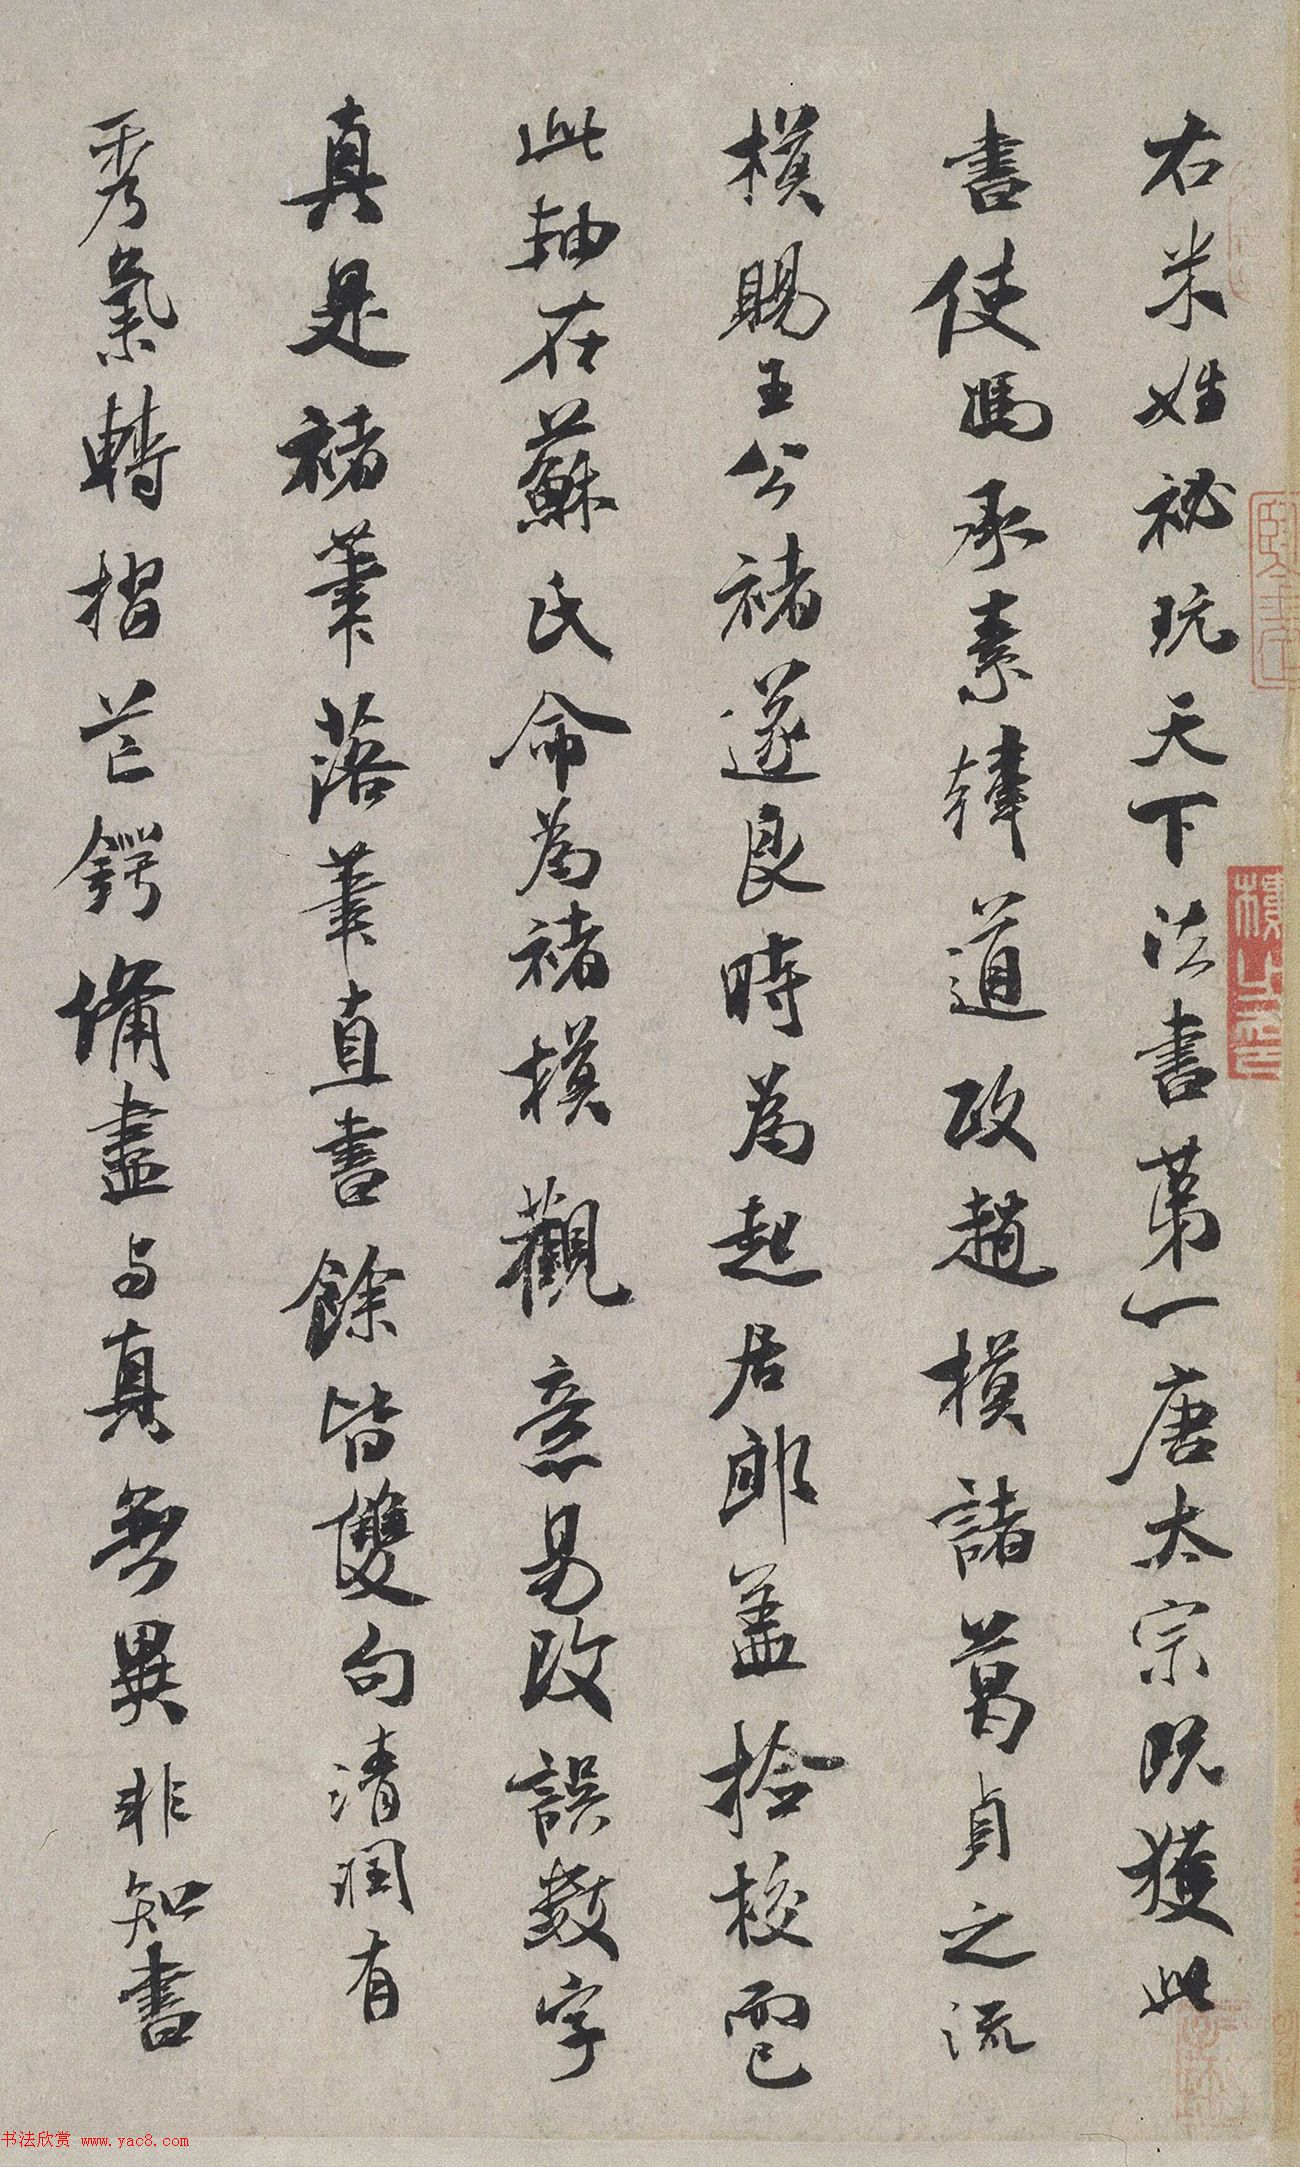 右米姓祕玩天下法書第一唐太宗既獲此
書使馮承素韓道政趙模諸葛貞之流
模賜王公褚遂良時為起居郎盖捡校而已
此軸在蘇氏命為褚模觀意易改誤數字
真是褚筆落筆直書餘皆雙句清潤有
秀氣轉摺芒鍔備盡与真無異非知書
书法欣赏 www.yac8.com